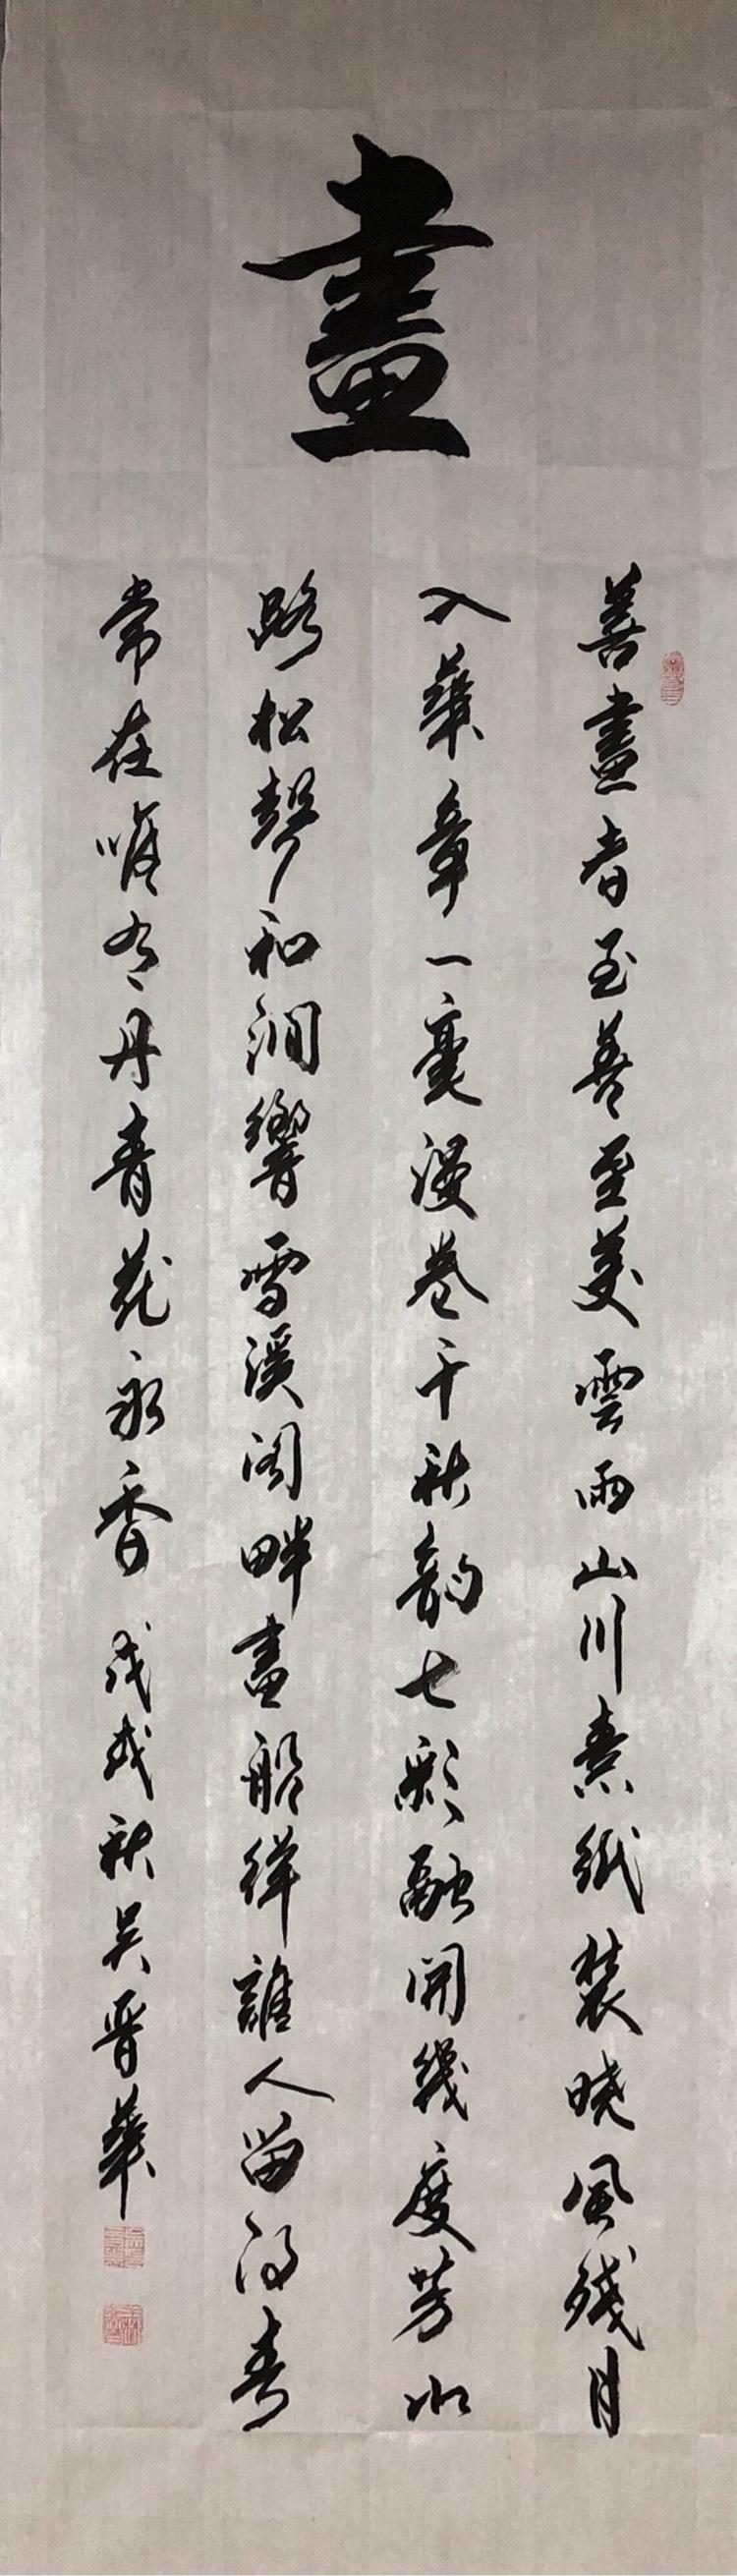 畫
善畫者至善至美雲雨山川素紙裝曉風殘月
入華章一毫漫卷千秋韵七彩融開幾度芳水
路松聲和澗響雪溪閣畔畫船徉誰人留得春
常在唯有丹青花永香 戊戌秋吴晋華